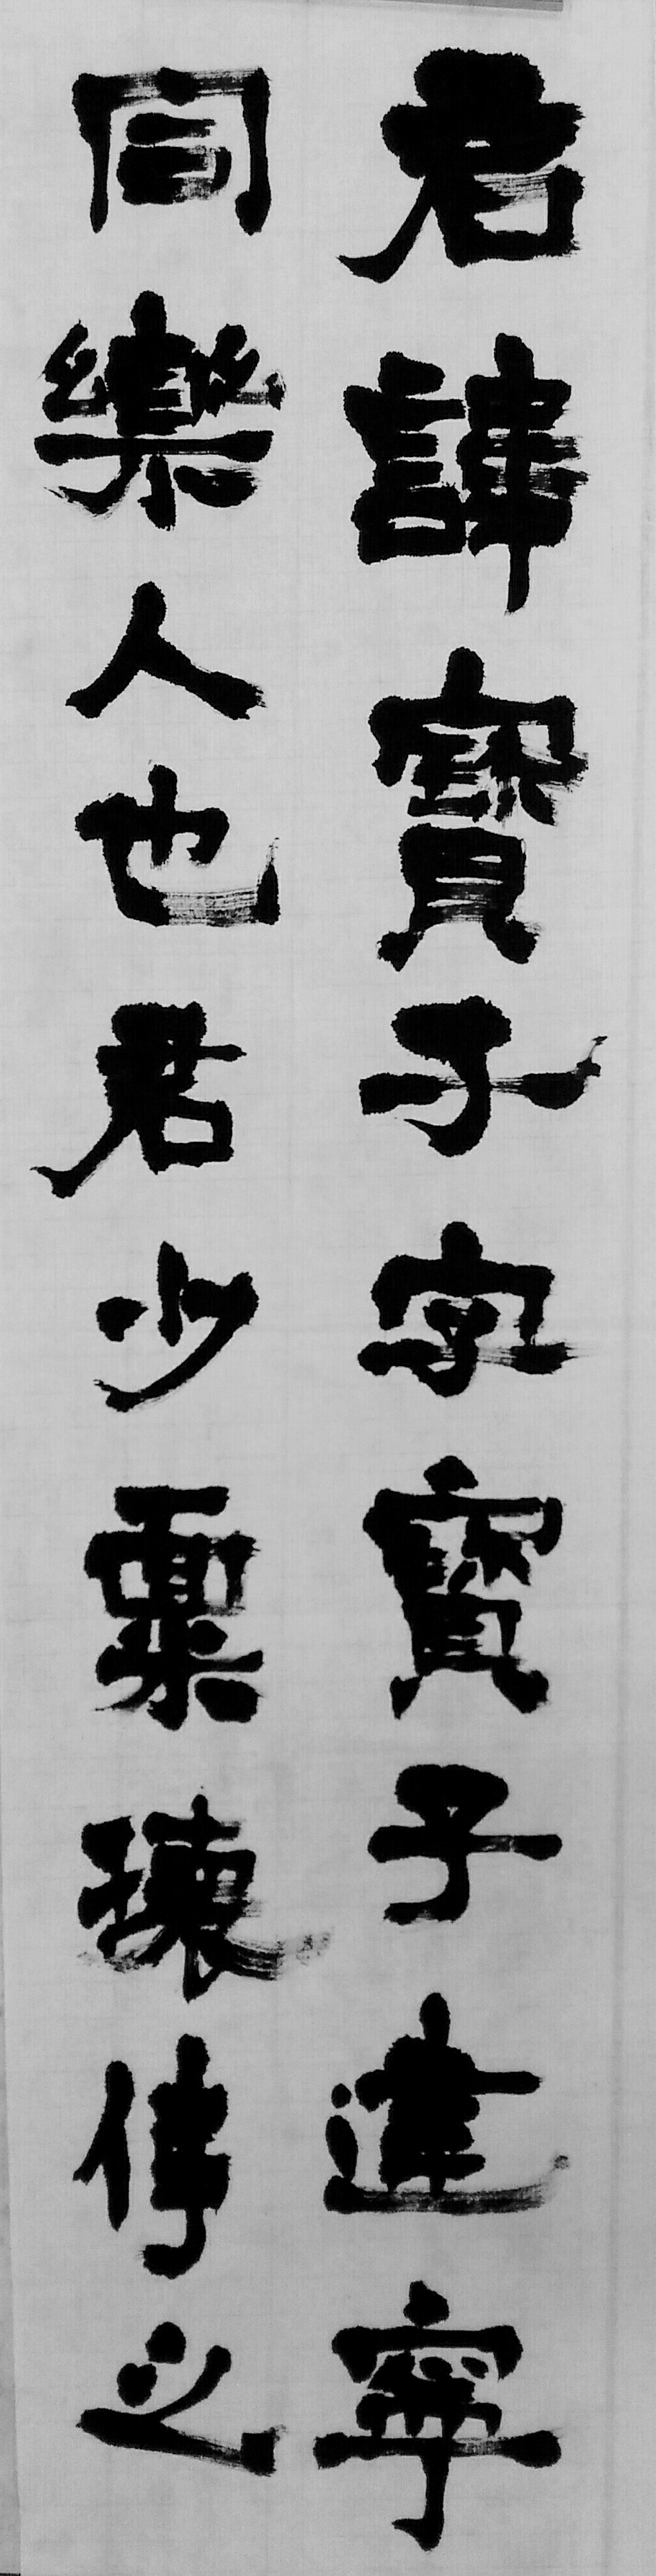 君諱寶子字寶子建寧
同樂人也君少稟瓌偉之